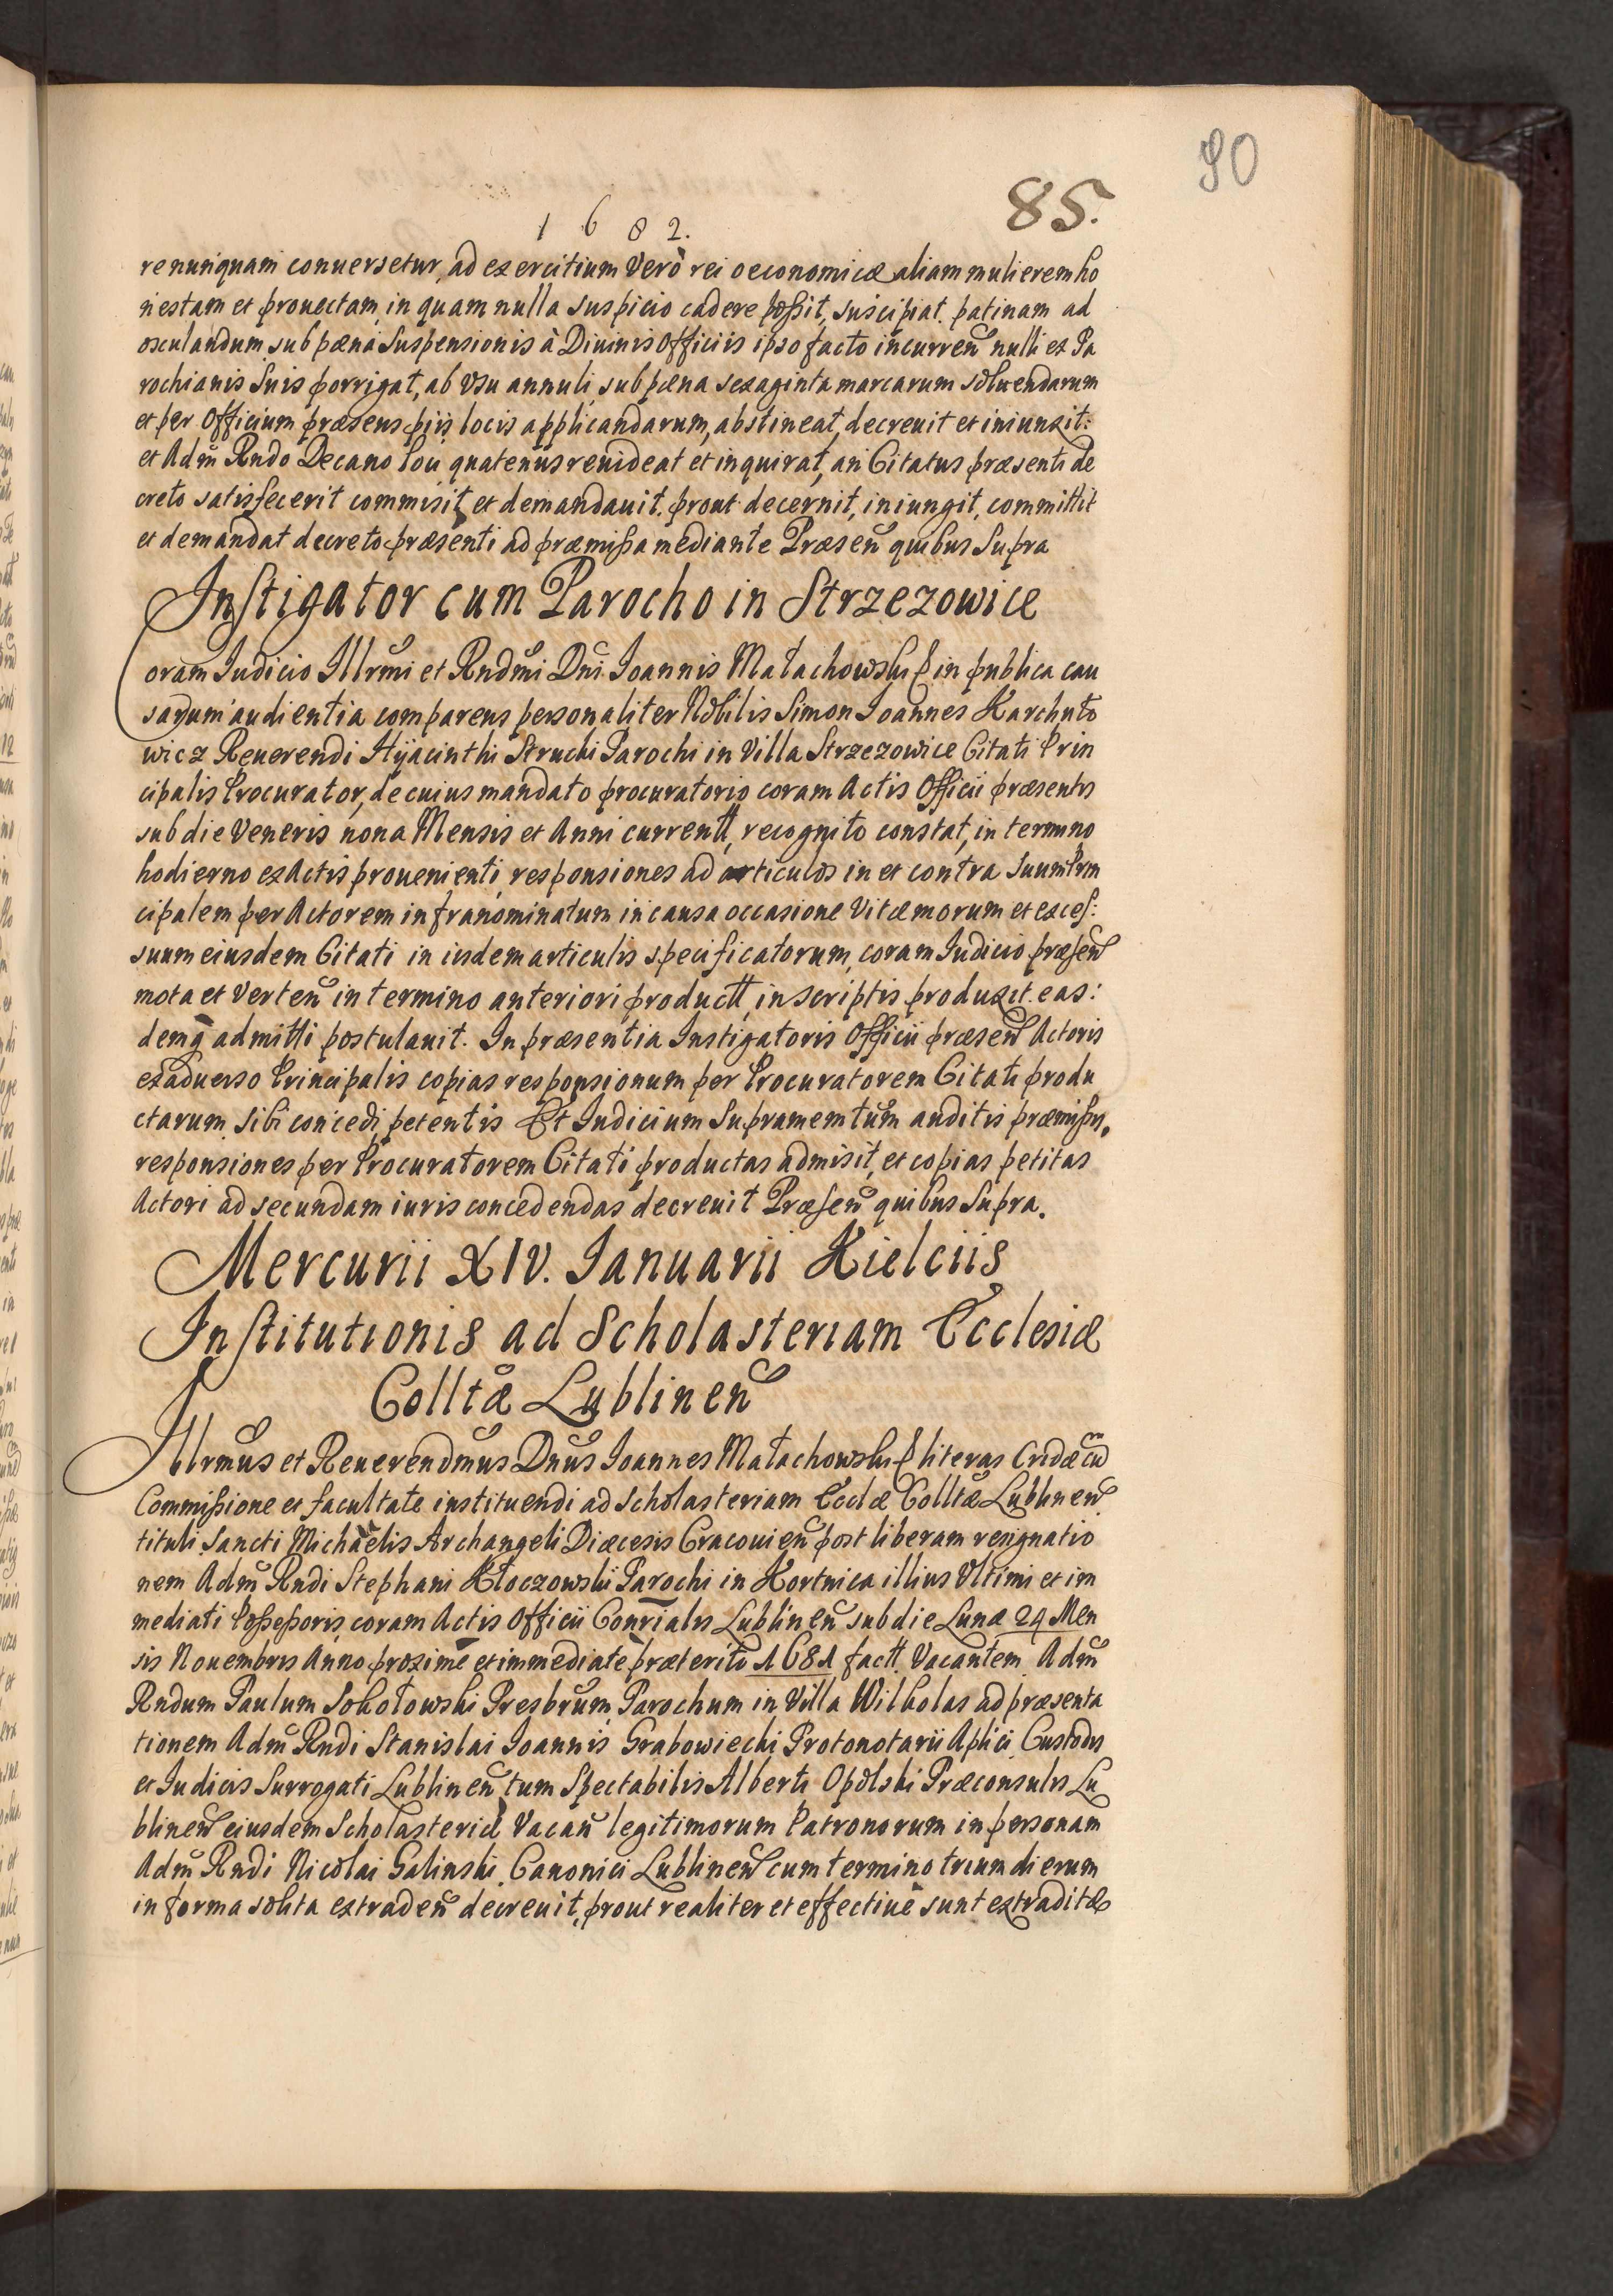 90
85.
1682.
re nunquam conuersetur, ad exercitium Verò rei oeconomicæ aliam mulierem ho
nestam et prouectam, in quam nulla suspicio cadere possit, suscipiat. patinam ad
osculandum, sub pæna Suspensionis à Diuinis Officiis ipso facto incurreñ nulli ex Pa
rochianis Suis porrigat, ab Vsu annuli, sub pæna sexaginta marcarum soluendarum
et per Officium præsens piis locis applicandarum, abstineat, decreuit et iniunxit:
et Adm̃ Rndo Decano loci quatenus reuideat et inquirat, an Citatus præsenti de
creto satisfecerit commisit et demandauit. prout decernit, iniungit, committit
et demandat decreto præsenti ad præmissa mediante Præseñ quibus Supra
Instigator cum Parocho in Strzezowice
Coram Iudicio Illrmi et Rndm̃i Dñi Ioannis Małachowski in publica cau
sarum audientia comparens personaliter Nobilis Simon Ioannes Karchuto
wicz Reuerendi Hyacinthi Strucki Parochi in Villa Strzezowice Citati Prin
cipalis Procurator, de cuius mandato procuratorio coram Actis Officii præsentis
sub die Veneris nona Mensis et Anni currentt, recognito constat, in termino
hodierno ex Actis prouenienti, responsiones ad articulos in et contra suum Prin
cipalem per Actorem infranominatum in causa occasione Vitæ morum et exces:
suum eiusdem Citati in iisdem articulis specificatorum, coram Iudicio præseñ
mota et Verteñ in termino anteriori productt, in scriptis produxit. eas:
demq̃ admitti postulauit. In præsentia Instigatoris Officii præseñ Actoris
ex aduerso Principalis copias responsionum per Procuratorem Citati produ
ctarum sibi concedi petentis Et Iudicium Supramemtum auditis præmissis,
responsiones per Procuratorem Citati productas admisit, et copias petitas
Actori ad secundam iuris concedendas decreuit Præseñ quibus Supra.
Mercurii XIV. Ianuarii Kielciis
Institutionis ad Scholasteriam Ecclesiæ
Colltæ Lublineñ
Illrmus et Reuerendm̃us Dñus Ioannes Małachowski literas Cridæ cũ
Commissione et facultate instituendi ad Scholasteriam Eccłæ Colltæ Lublineñ
tituli Sancti Michaëlis Archangeli Diœcesis Cracouieñ post liberam resignatio
nem Adm̃ Rndi Stephani Kłoczowski Parochi in Kortnica illius Vltimi et im
mediati Possessoris, coram Actis Officii Conrialis Lublineñ sub die Lunæ 24 Men
sis Nouembris Anno proxime et immediate præterito 1681 factt. Vacantem Adm̃
Rndum Paulum Sokołowski Presbr̃um Parochum in Villa Wilkolas ad præsenta
tionem Adm̃ Rndi Stanislai Ioannis Grabowiecki Protonotarii Aplici, Custodis
et Iudicis Surrogati Lublineñ tum Spectabilis Alberti Opolski Præconsulis Lu
blineñ eiusdem Scholasteriæ Vacañ legitimorum Patronorum in personam
Adm̃ Rndi Nicolai Galinski Canonici Lublineñ cum termino trium dierum
in forma solita extradeñ decreuit, prout realiter et effectiuè sunt extraditæ